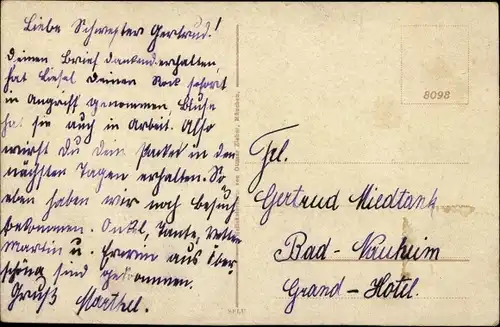 Liebe Schwester Gertrud!
Deinen Brief dankend erhalten,
hat Liesel Deinen Rock sofort
in Angriff genommen, Bluse
hat sie auch in Arbeit. Also
wirst du Dein Packet in den
nächsten Tagen erhalten. So
eben haben wir noch Besuch
bekommen. Onkel, Tante, Vetter
Martin u. aus Über-
sind gekommen.
Gruß Marthel.
8098
Frl.
Gertrud Miedtank
Bad-Nauheim
Grand-Hotel.